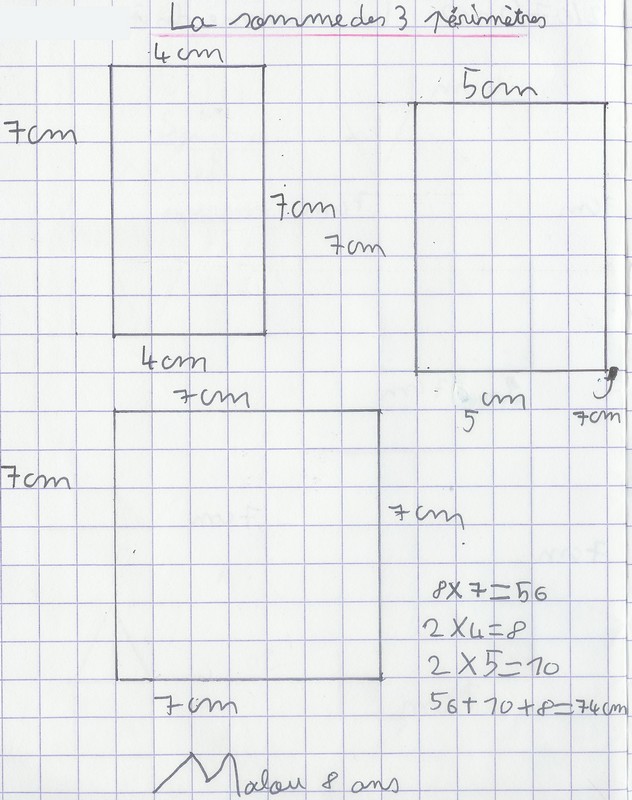 La somme des 3 périmètres
4cm
7cm
7cm
4cm
5cm
7cm
5 cm
7cm
7cm
7cm
7cm
7cm
8x7=56
2x4=8
2x5=10
56+10+8=74cm
Malou 8 ans